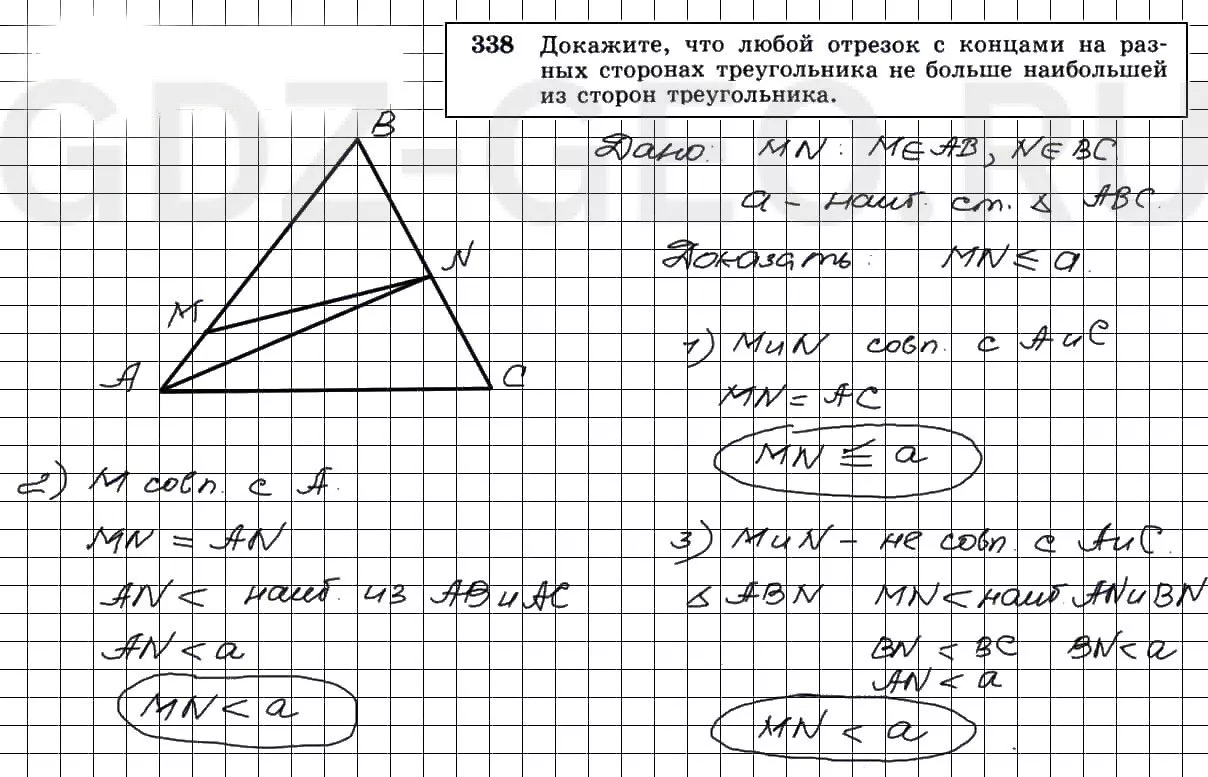 338 Докажите, что любой отрезок с концами на раз-
ных сторонах треугольника не больше наибольшей
из сторон треугольника.
GDZ-GEO.RU
B
N
M
A
C
Дано: MN: M∈AB, N∈BC
a - наиб. ст. Δ ABC.
Доказать: MN ≤ a.
1) M и N совп. с A и C
MN = AC
MN ≤ a
2) M совп. с A.
MN = AN
AN < наиб. из AB и AC
AN < a
MN < a
3) M и N - не совп. с A и C.
Δ ABN MN < наиб. AN и BN
BN < BC BN < a
AN < a
MN < a